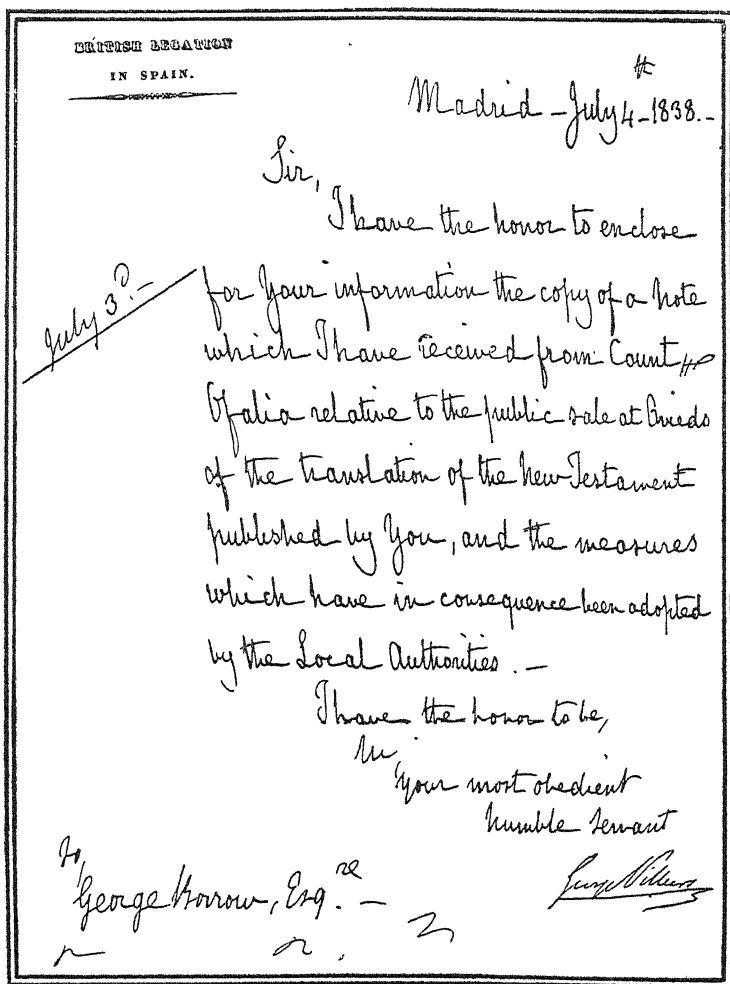 BRITISH LEGATION
IN SPAIN.
Madrid - July 4th - 1838. -
Sir,
I have the honor to enclose
July 3d. -
for Your information the copy of a Note
which I have received from Count
Ofalia relative to the public sale at Oviedo
of the translation of the New Testament
published by You, and the measures
which have in consequence been adopted
by the Local Authorities. -
I have the honor to be,
Sir,
Your most obedient
humble Servant
George Villiers
To,
George Borrow, Esq.re -